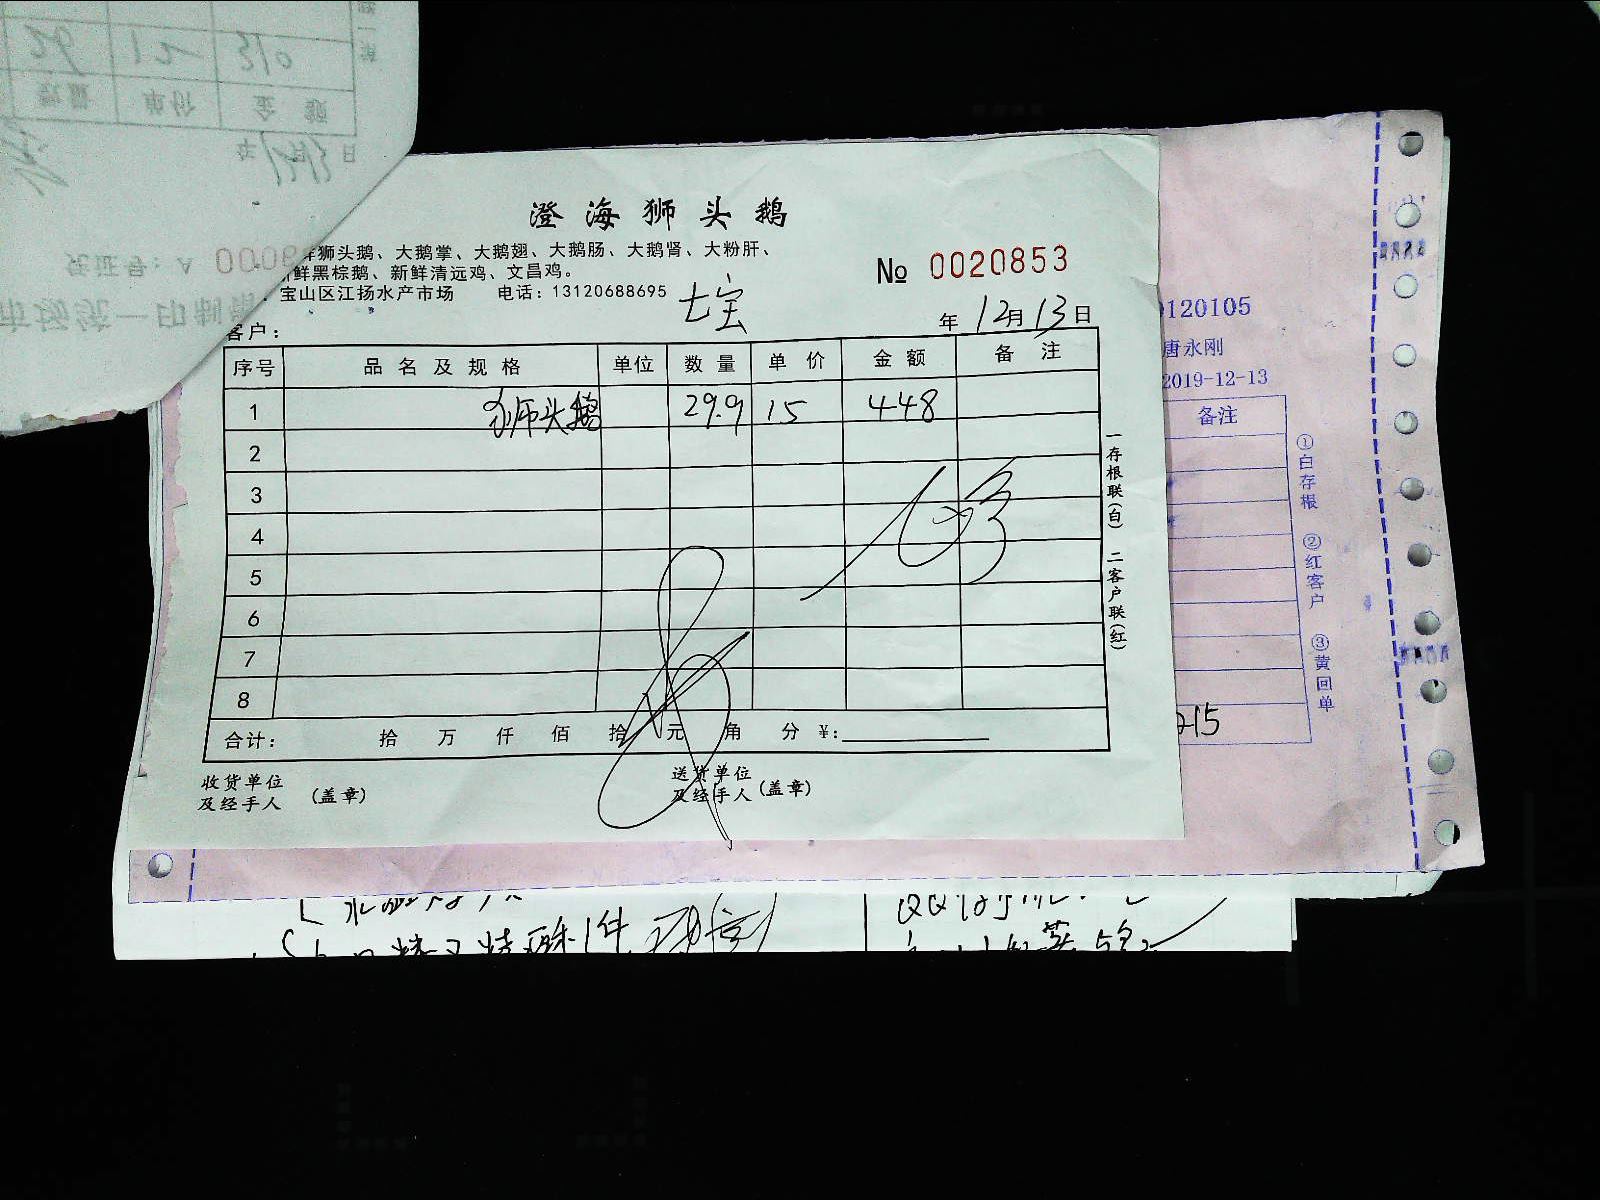 澄海狮头鹅
狮头鹅、大鹅掌、大鹅翅、大鹅肠、大鹅肾、大粉肝、
鲜黑棕鹅、新鲜清远鸡、文昌鸡。
宝山区江扬水产市场 电话：13120688695
№ 0020853
七宝
客户：
年 12月13日
序号 品名及规格 单位 数量 单价 金额 备注
1 狮头鹅 29.9 15 448
2
3
4
5
6
7
8
合计： 拾 万 仟 佰 拾 元 角 分 ¥：
收货单位
及经手人 （盖章）
送货单位
及经手人（盖章）
一存根联（白） 二客户联（红）
0120105
唐永刚
2019-12-13
备注
①白存根 ②红客户 ③黄回单
215
36 12 310
数量 单价 金额
年12月13日
凭证号：A 0006
市场统一印制